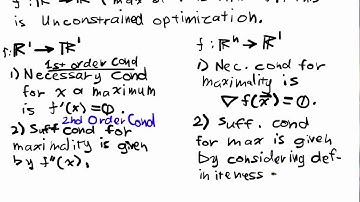 is Unconstrained optimization.
f: ℝ¹ → ℝ¹
1st order Cond
1) Necessary Cond
for x a maximum
is f'(x)=0.
2nd Order Cond
2) Suff cond for
maximality is given
by f"(x).
f: ℝⁿ → ℝ¹
1) Nec. cond for
maximality is
∇f(x⃗)=0.
2) Suff. cond
for max is given
by considering def-
initeness